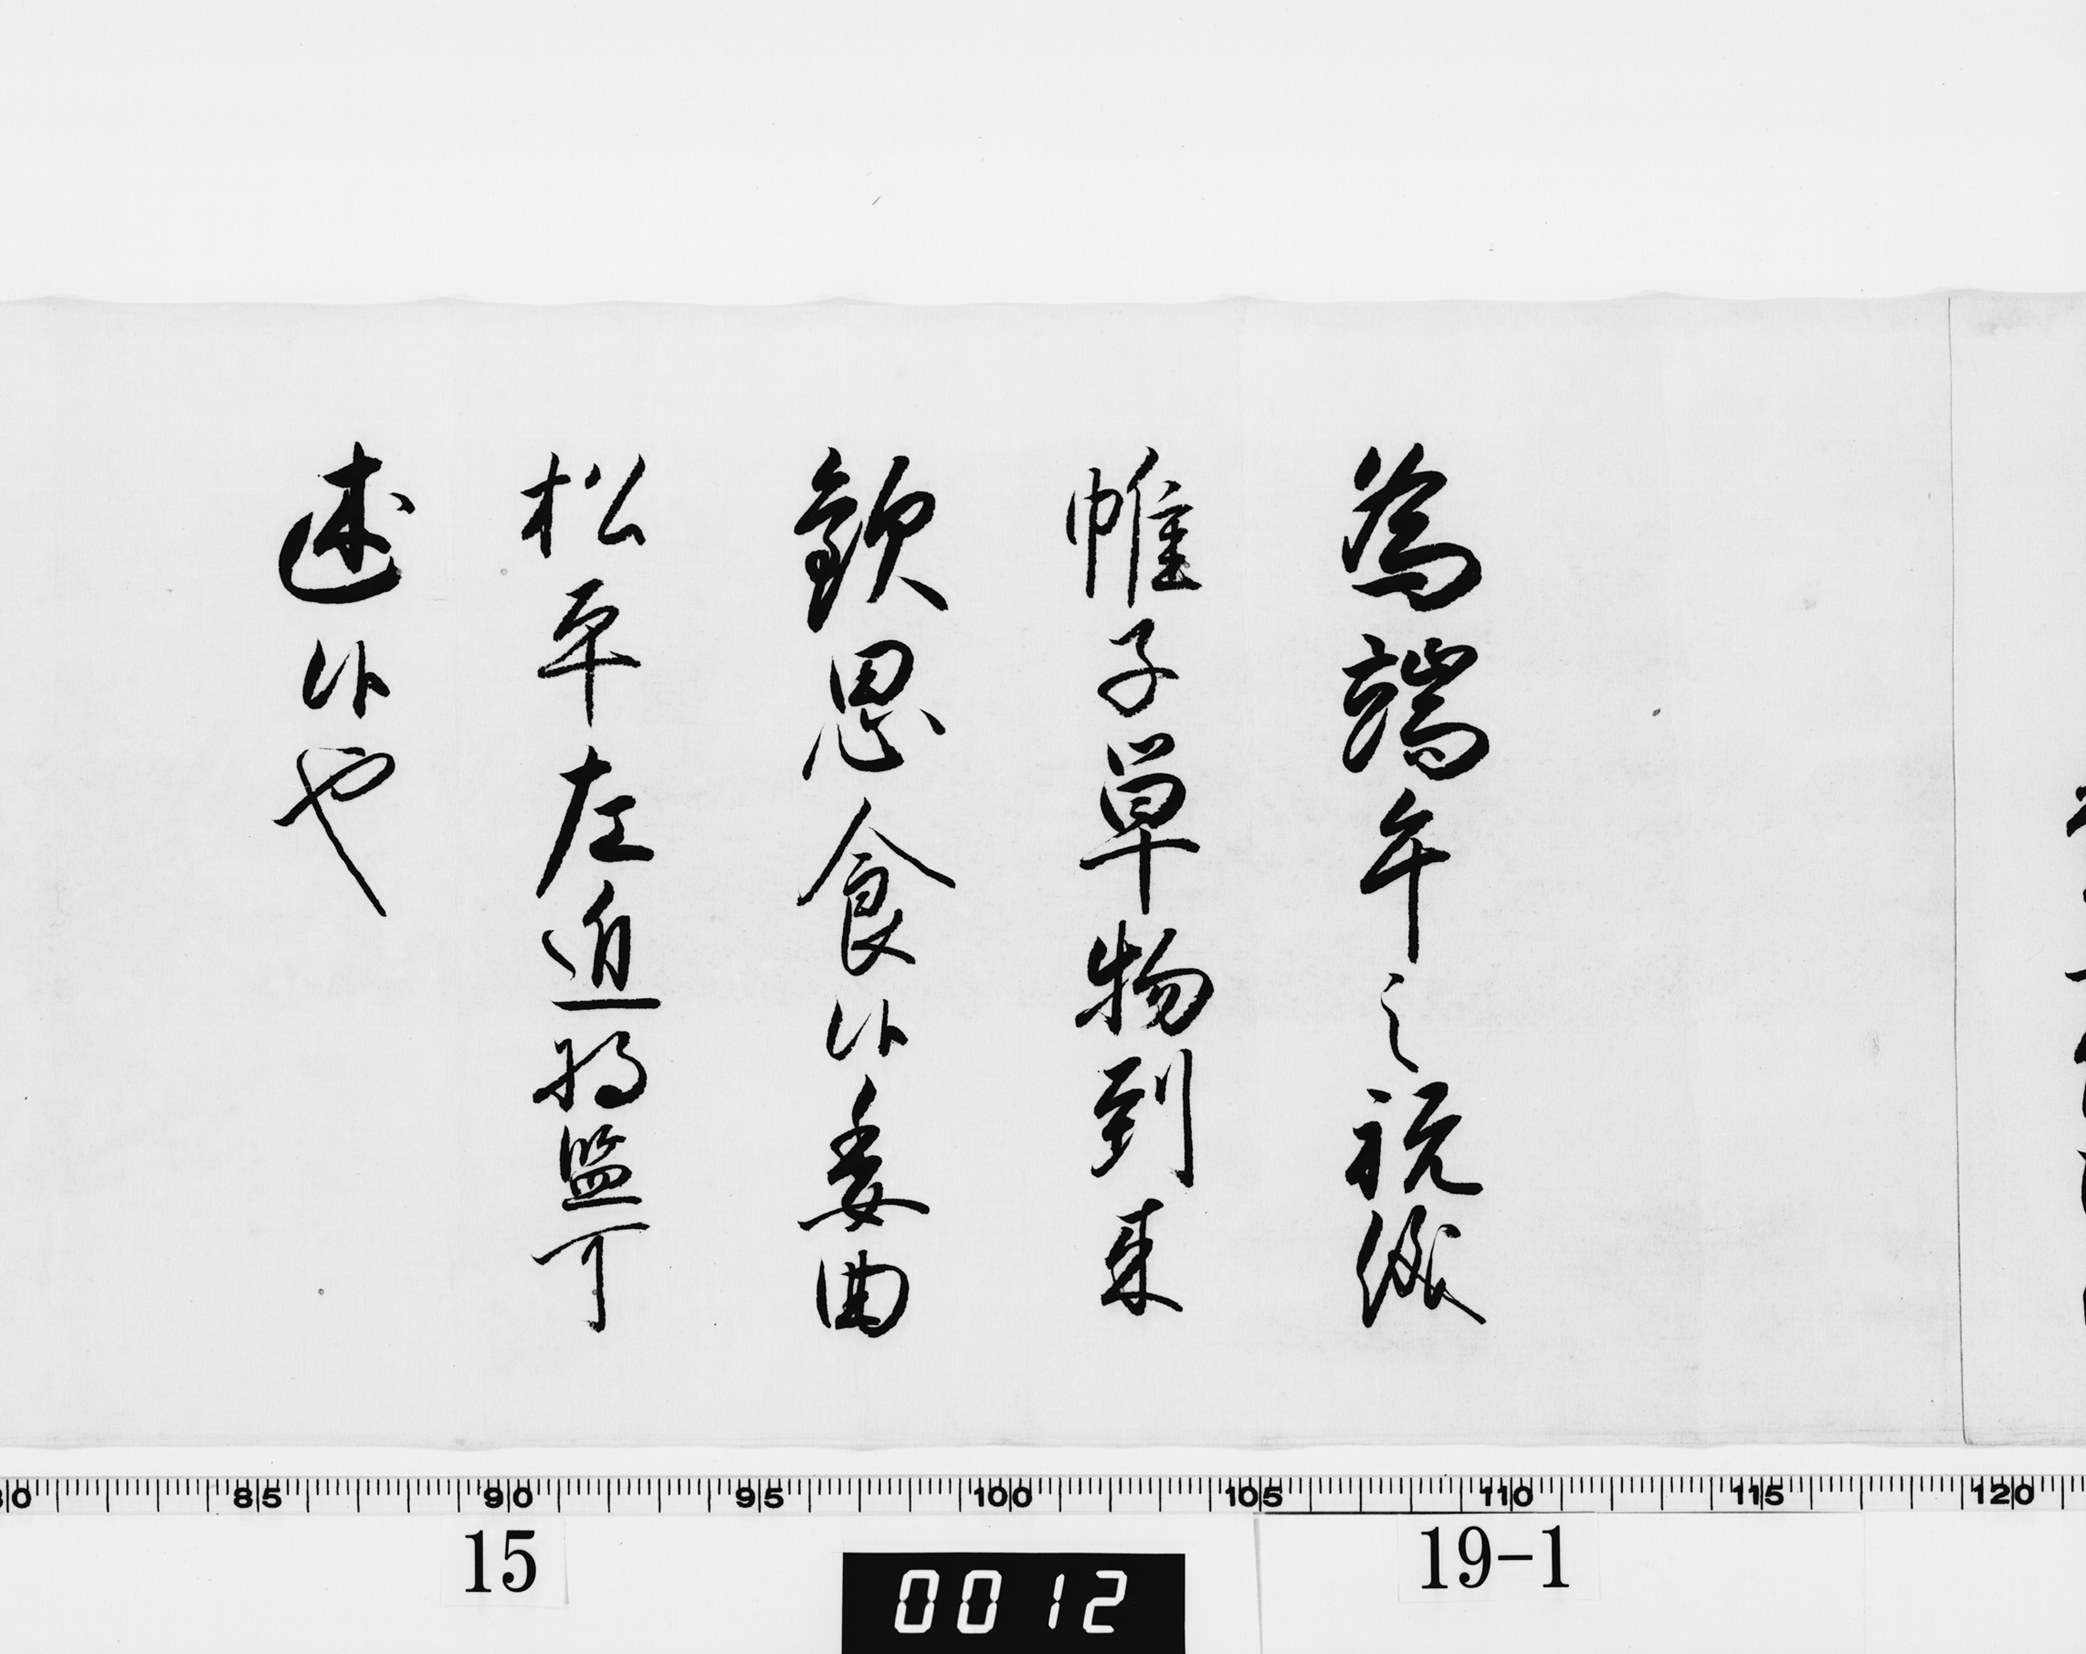 為端午之祝儀
帷子単物到来
歓思食候委曲
松平左近将監可
述候也
80 85 90 95 100 105 110 115 120
15
0012
19-1